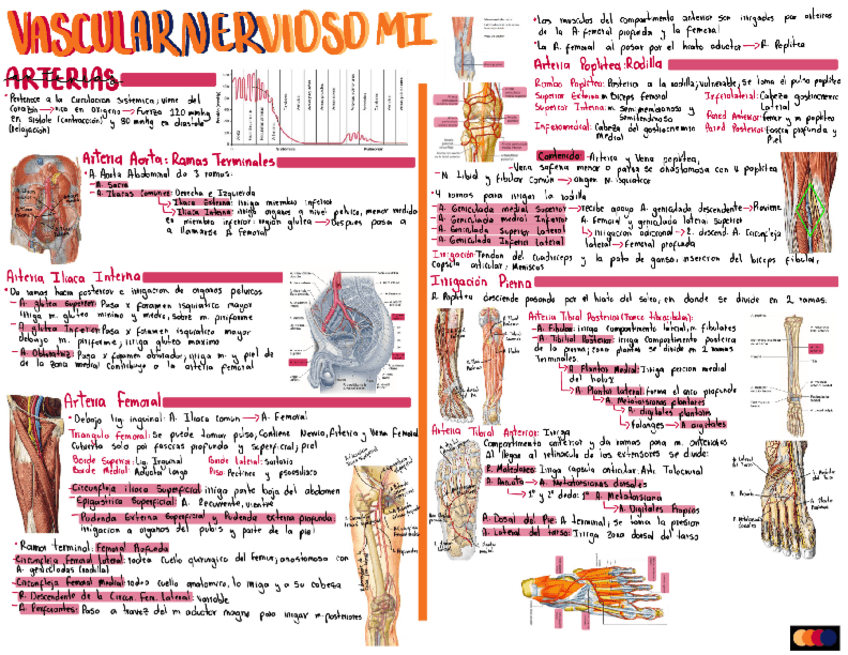 VASCULARNERVIOSO MI
ARTERIAS
• Pertenece a la Circulación Sistemica; viene del
Corazón → rica en Oxígeno → Fuerza 120 mmHg
en sístole (contracción) y 80 mmHg en diástole
(relajación)
Arteria Aorta: Ramas Terminales
• A. Aorta Abdominal da 3 ramas:
- A. Sacra
- A. Iliacas Comunes: Derecha e Izquierda
Iliaca Externa: irriga miembro inferior
Iliaca Interna: irriga organos a nivel pelvico, menor medida
en miembro inferior: región glutea → Despues pasa a
a llamarse A. femoral
Arteria Iliaca Interna
• Da ramas hacia posterior e irrigacion de organos pelvicos
- A. glutea Superior: Pasa x foramen isquiatico mayor
irriga m. gluteo minimo y medio, sobre m. piriforme
- A. glutea Inferior: Pasa x foramen isquiatico mayor
debajo m. piriforme, irriga gluteo maximo
- A. Obturatriz: Pasa x foramen obturador, irriga m. y piel de
de la zona medial contribuye a la arteria femoral
Arteria Femoral
• Debajo lig. inguinal: A. Iliaca común → A. Femoral
Triangulo femoral: Se puede tomar pulso, Contiene Nervio, Arteria y Vena Femoral
cubierto solo por fascias profunda y superficial, piel
Borde Superior: Lig. Inguinal Borde lateral: Sartorio
Borde Medial: Aductor Longo Piso: Pectineo y psoasiliaco
- Circunfleja iliaca Superficial: irriga parte baja del abdomen
- Epigastrica Superficial: A. Recurrente, vientre
- Pudenda Externa Superficial y Pudenda externa profunda:
irrigacion a organos del pubis y parte de la piel
• Ramas Terminal: Femoral Profunda
- Circunfleja Femoral lateral: rodea cuello quirurgico del Femur, anastomosa con
A. geniculadas (rodilla)
- Circunfleja Femoral Medial: rodea cuello anatomico, lo irriga y a su cabeza
- R. Descendente de la Circun. Fem. Lateral: Variable
- A. Perforantes: Paso a travez del m. aductor magno para irrigar m. posteriores
• Los musculos del compartimento anterior son irrigados por arterias
de la A. femoral profunda y la femoral
• La A. femoral al pasar por el hiato aductor → A. Poplitea
Arteria Poplitea: Rodilla
Rombo Popliteo: Posterior a la rodilla; vulnerable, se toma el pulso popliteo
Superior Externa: m. Biceps femoral
Superior Interna: m. Semimembranoso y
Semitendinoso
Inferomedial: Cabeza del gastrocnemio
Medial
Inferolateral: Cabeza gastrocnemio
Lateral
Pared Anterior: femur y m. popliteo
Pared Posterior: fascia profunda y
Piel
Contenido: Arteria y Vena poplitea,
- Vena safena menor o parva se anastomosa con V. poplitea
- N. tibial y fibular común → origen N. isquiatico
• 4 ramas para irrigar la rodilla
- A. Geniculada medial Superior → recibe apoyo A. geniculada descendente → Proviene
- A. Geniculada medial Inferior
- A. Geniculada Superior Lateral
- A. Geniculada Inferior Lateral
A. Femoral y geniculada lateral superior
irrigacion adicional → R. descend. A. Circunfleja
lateral → Femoral profunda
Irrigación: Tendon del cuadriceps y la pata de ganso, insercion del biceps fibular,
Capsula articular, Meniscos
Irrigación Pierna
A. Poplitea desciende pasando por el hiato del soleo, en donde se divide en 2 ramas.
Arteria Tibial Posterior (Tronco tibiofibular):
- A. Fibular: irriga compartimento lateral, m. fibulares
- A. Tibial Posterior: irriga compartimento posterior
de la pierna; zona plantar se divide en 2 ramas
Terminales.
A. Plantar Medial: Irriga porcion medial
del halux
A. Plantar lateral: forma el arco profundo
A. Metatarsianas plantares
A. digitales plantares
falanges → A. digitales
Arteria Tibial Anterior: Irriga
Compartimento anterior y da ramas para m. anteriores
Al llegar al retinaculo de los extensores se divide:
R. Maleolares: Irriga capsula articular. Artic. Talocrural
A. Arcuata → A. Metatarsianas dorsales
1° y 2° dedo: 1° A. Metatarsiana
A. Digitales Propias
A. Dorsal del Pie: A. terminal, se toma la presion
A. Lateral del tarso: Irriga zona dorsal del tarso